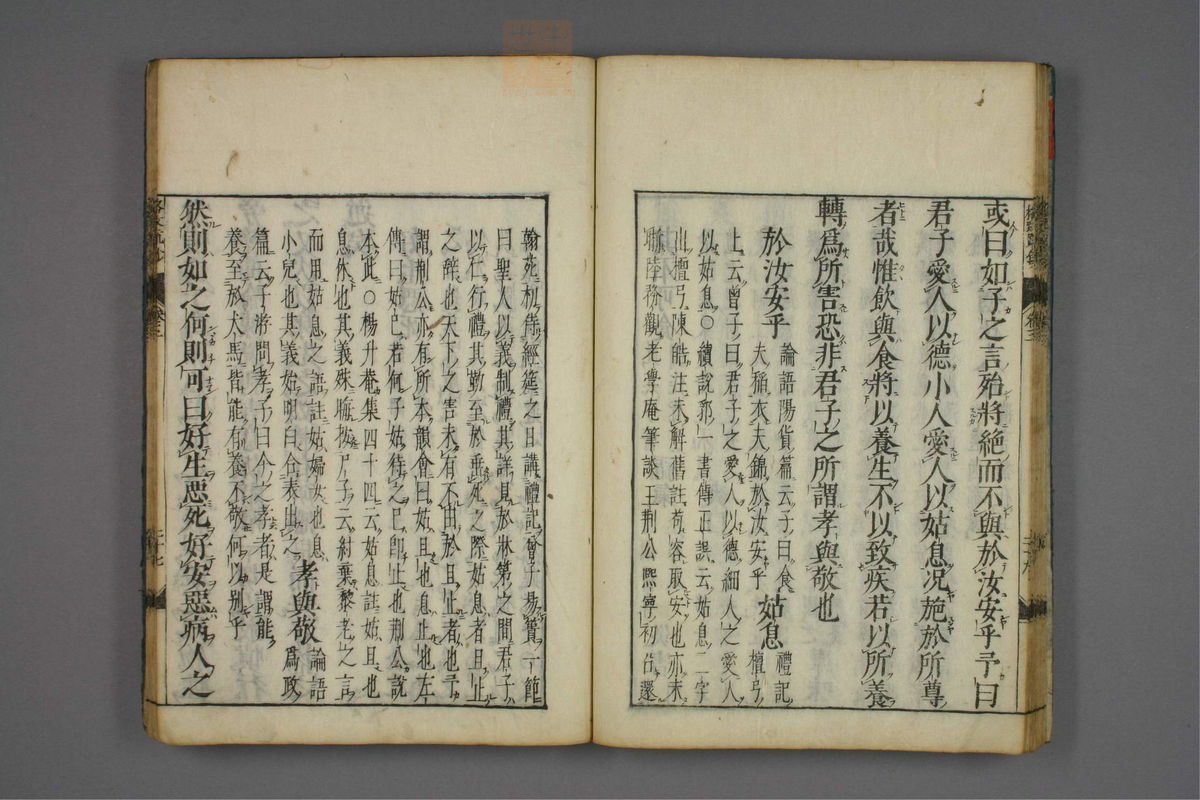 或曰如子之言殆將絕而不與於汝安乎予曰
君子愛人以德小人愛人以姑息况施於所尊
者哉惟飲與食將以養生不以致疾若以所養
轉爲所害恐非君子之所謂孝與敬也
於汝安乎 論語陽貨篇云子曰食
夫稲衣夫錦於汝安乎 姑息 禮記檀弓
上云曾子曰君子之愛人以德細人之愛人
以姑息○續說郛一書傳正誤云姑息二字
出檀弓陳皓注未解舊註苟容取安也亦未
陸務觀老學庵筆談王荆公熙寧初召還
翰苑初侍經筵之日講禮記曾子易簀一節
曰聖人以義制禮其詳見於牀第之間君子
以仁行禮其勤至於垂死之際姑息者且止
之辭也天下之害未有不由於且止者也予
謂荆公亦有所本韻會曰姑且也息止也左
傳曰姑已若何子姑待之已即止也荆公說
本此○楊升菴集四十四云姑息註姑且也
息休也其義殊晦按尸子云紂棄黎老之言
而用姑息之語註姑婦女也息
小兒也其義始明白合表出之 孝與敬 論語爲政
篇云子游問孝子曰今之孝者是謂能
養至於犬馬皆能有養不敬何以别乎
然則如之何則可曰好生惡死好安惡病人之